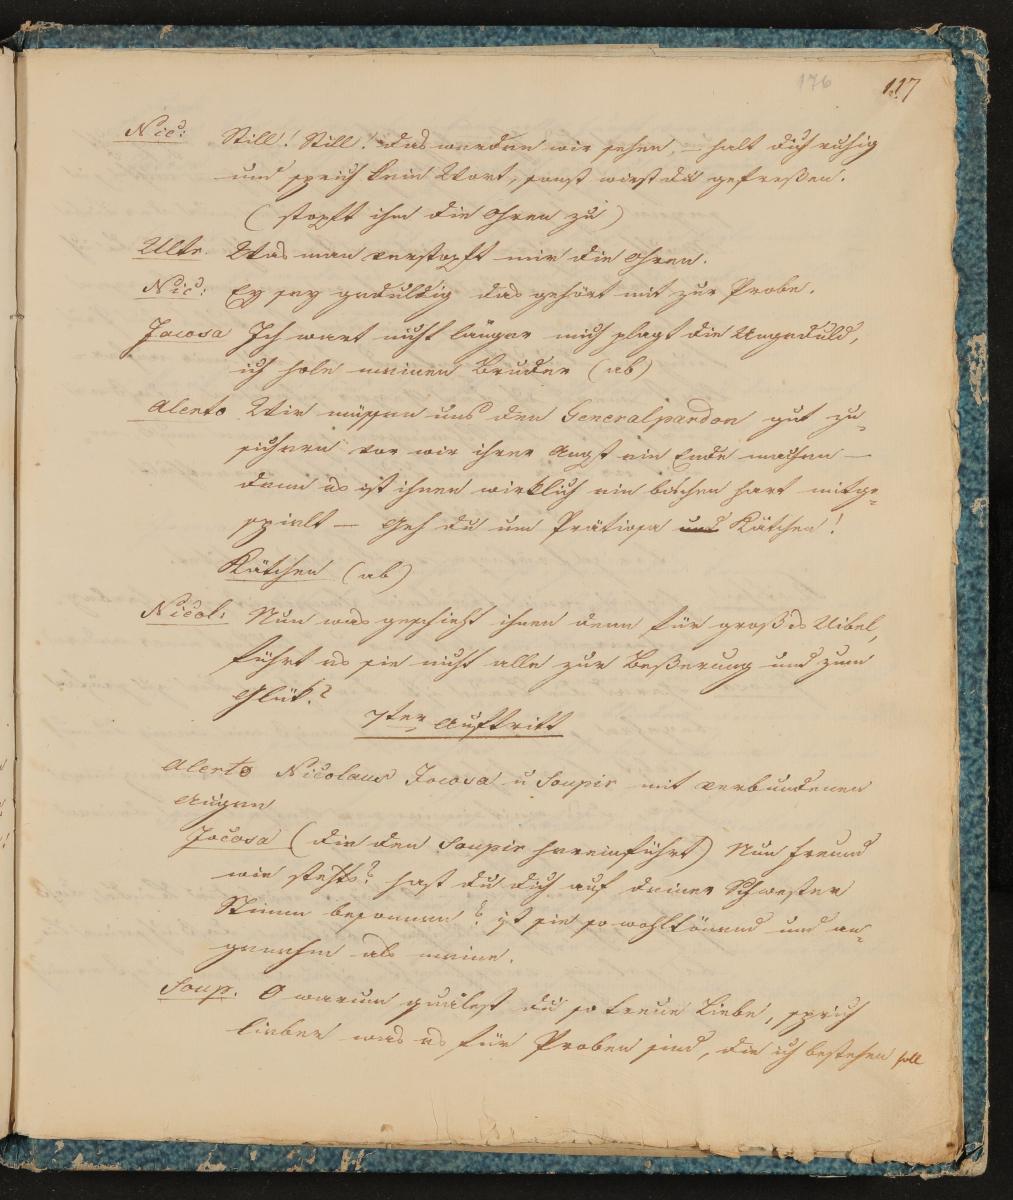 176 117
Nic: Still! Still! das werden wir sehen, – halt dich ruhig
und sprich kein Wort, sonst wirst du gefreßen.
(stopft ihm die Ohren zu)
Ults. Was man verstopft mir die Ohren.
Nic: Ey sey geduldig das gehört mit zur Probe.
Jocosa Ich wart nicht länger mich plagt die Ungeduld,
ich hole meinen Bruder (ab)
Alento Wir müssen uns den Generalpardon gut zu-
sichern vor wir ihrer Angst ein Ende machen –
denn es ist ihnen wirklich ein bischen hart mitge-
spielt – Geh du um Prätiosa und Kätchen!
Kätchen (ab)
Nicol: Nun was geschieht ihnen denn für großes Uibel,
führt es sie nicht alle zur Beßerung und zum
Glük?
7ter Auftritt
Alento Nicolaus Jocosa u Soupir mit verbundenen
Augen
Jocosa (die den Soupir hereinführt) Nun Freund
wie stehts? hast du dich auf deiner Schwester
Stimm besonnen? ist sie so wohltönend und an-
genehm als meine.
Soup. O warum quälest du so treue Liebe, sprich
lieber was es für Proben sind, die ich bestehen soll